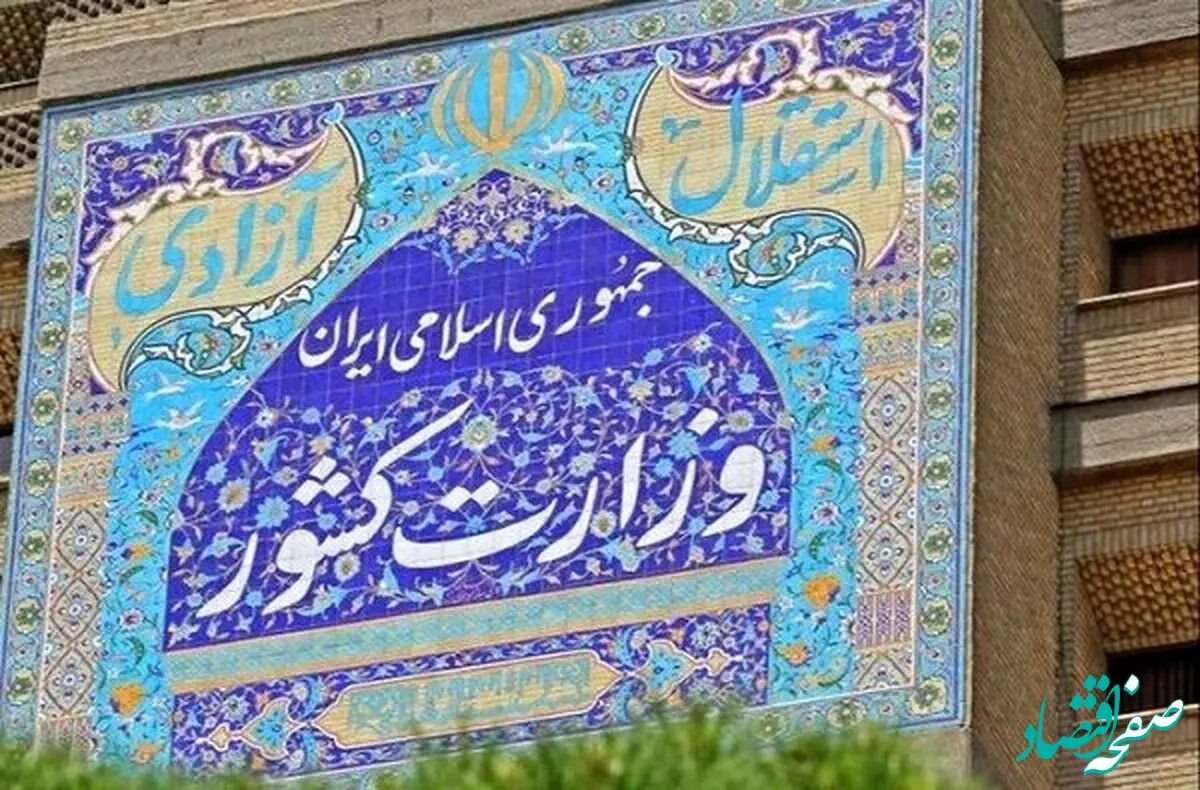 استقلال
آزادی
جمهوری اسلامی ایران
وزارت کشور
صفحه اقتصاد